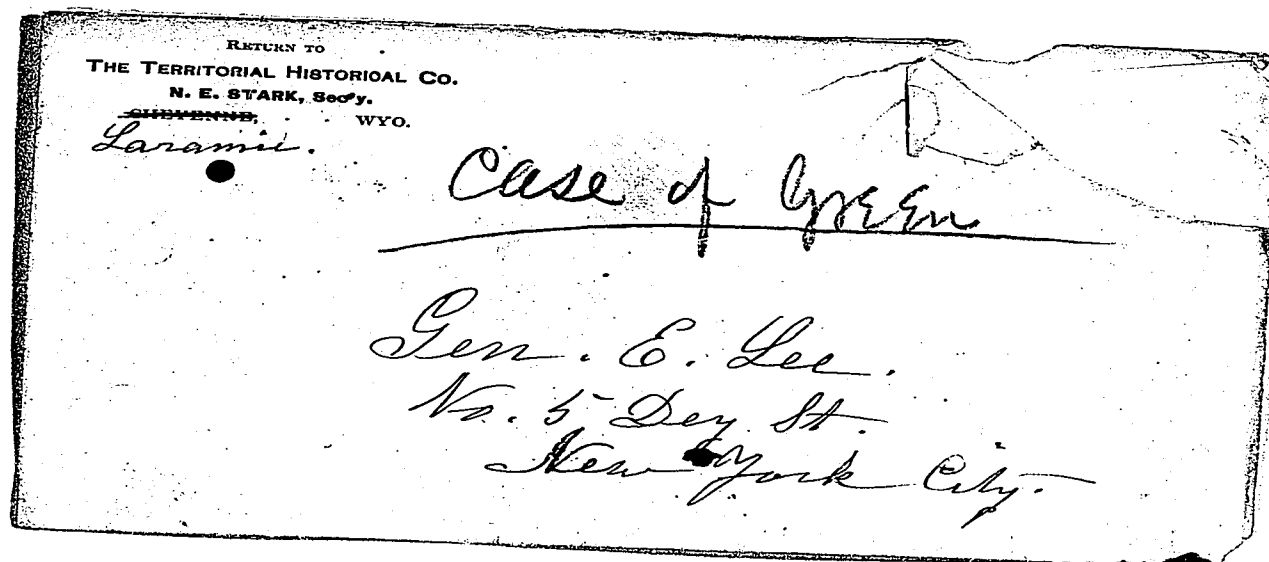 RETURN TO
THE TERRITORIAL HISTORICAL CO.
N. E. STARK, Sec'y.
CHEYENNE, WYO.
Laramie.
Case of Green
Gen. E. Lee.
No. 5 Dey St.
New York City.